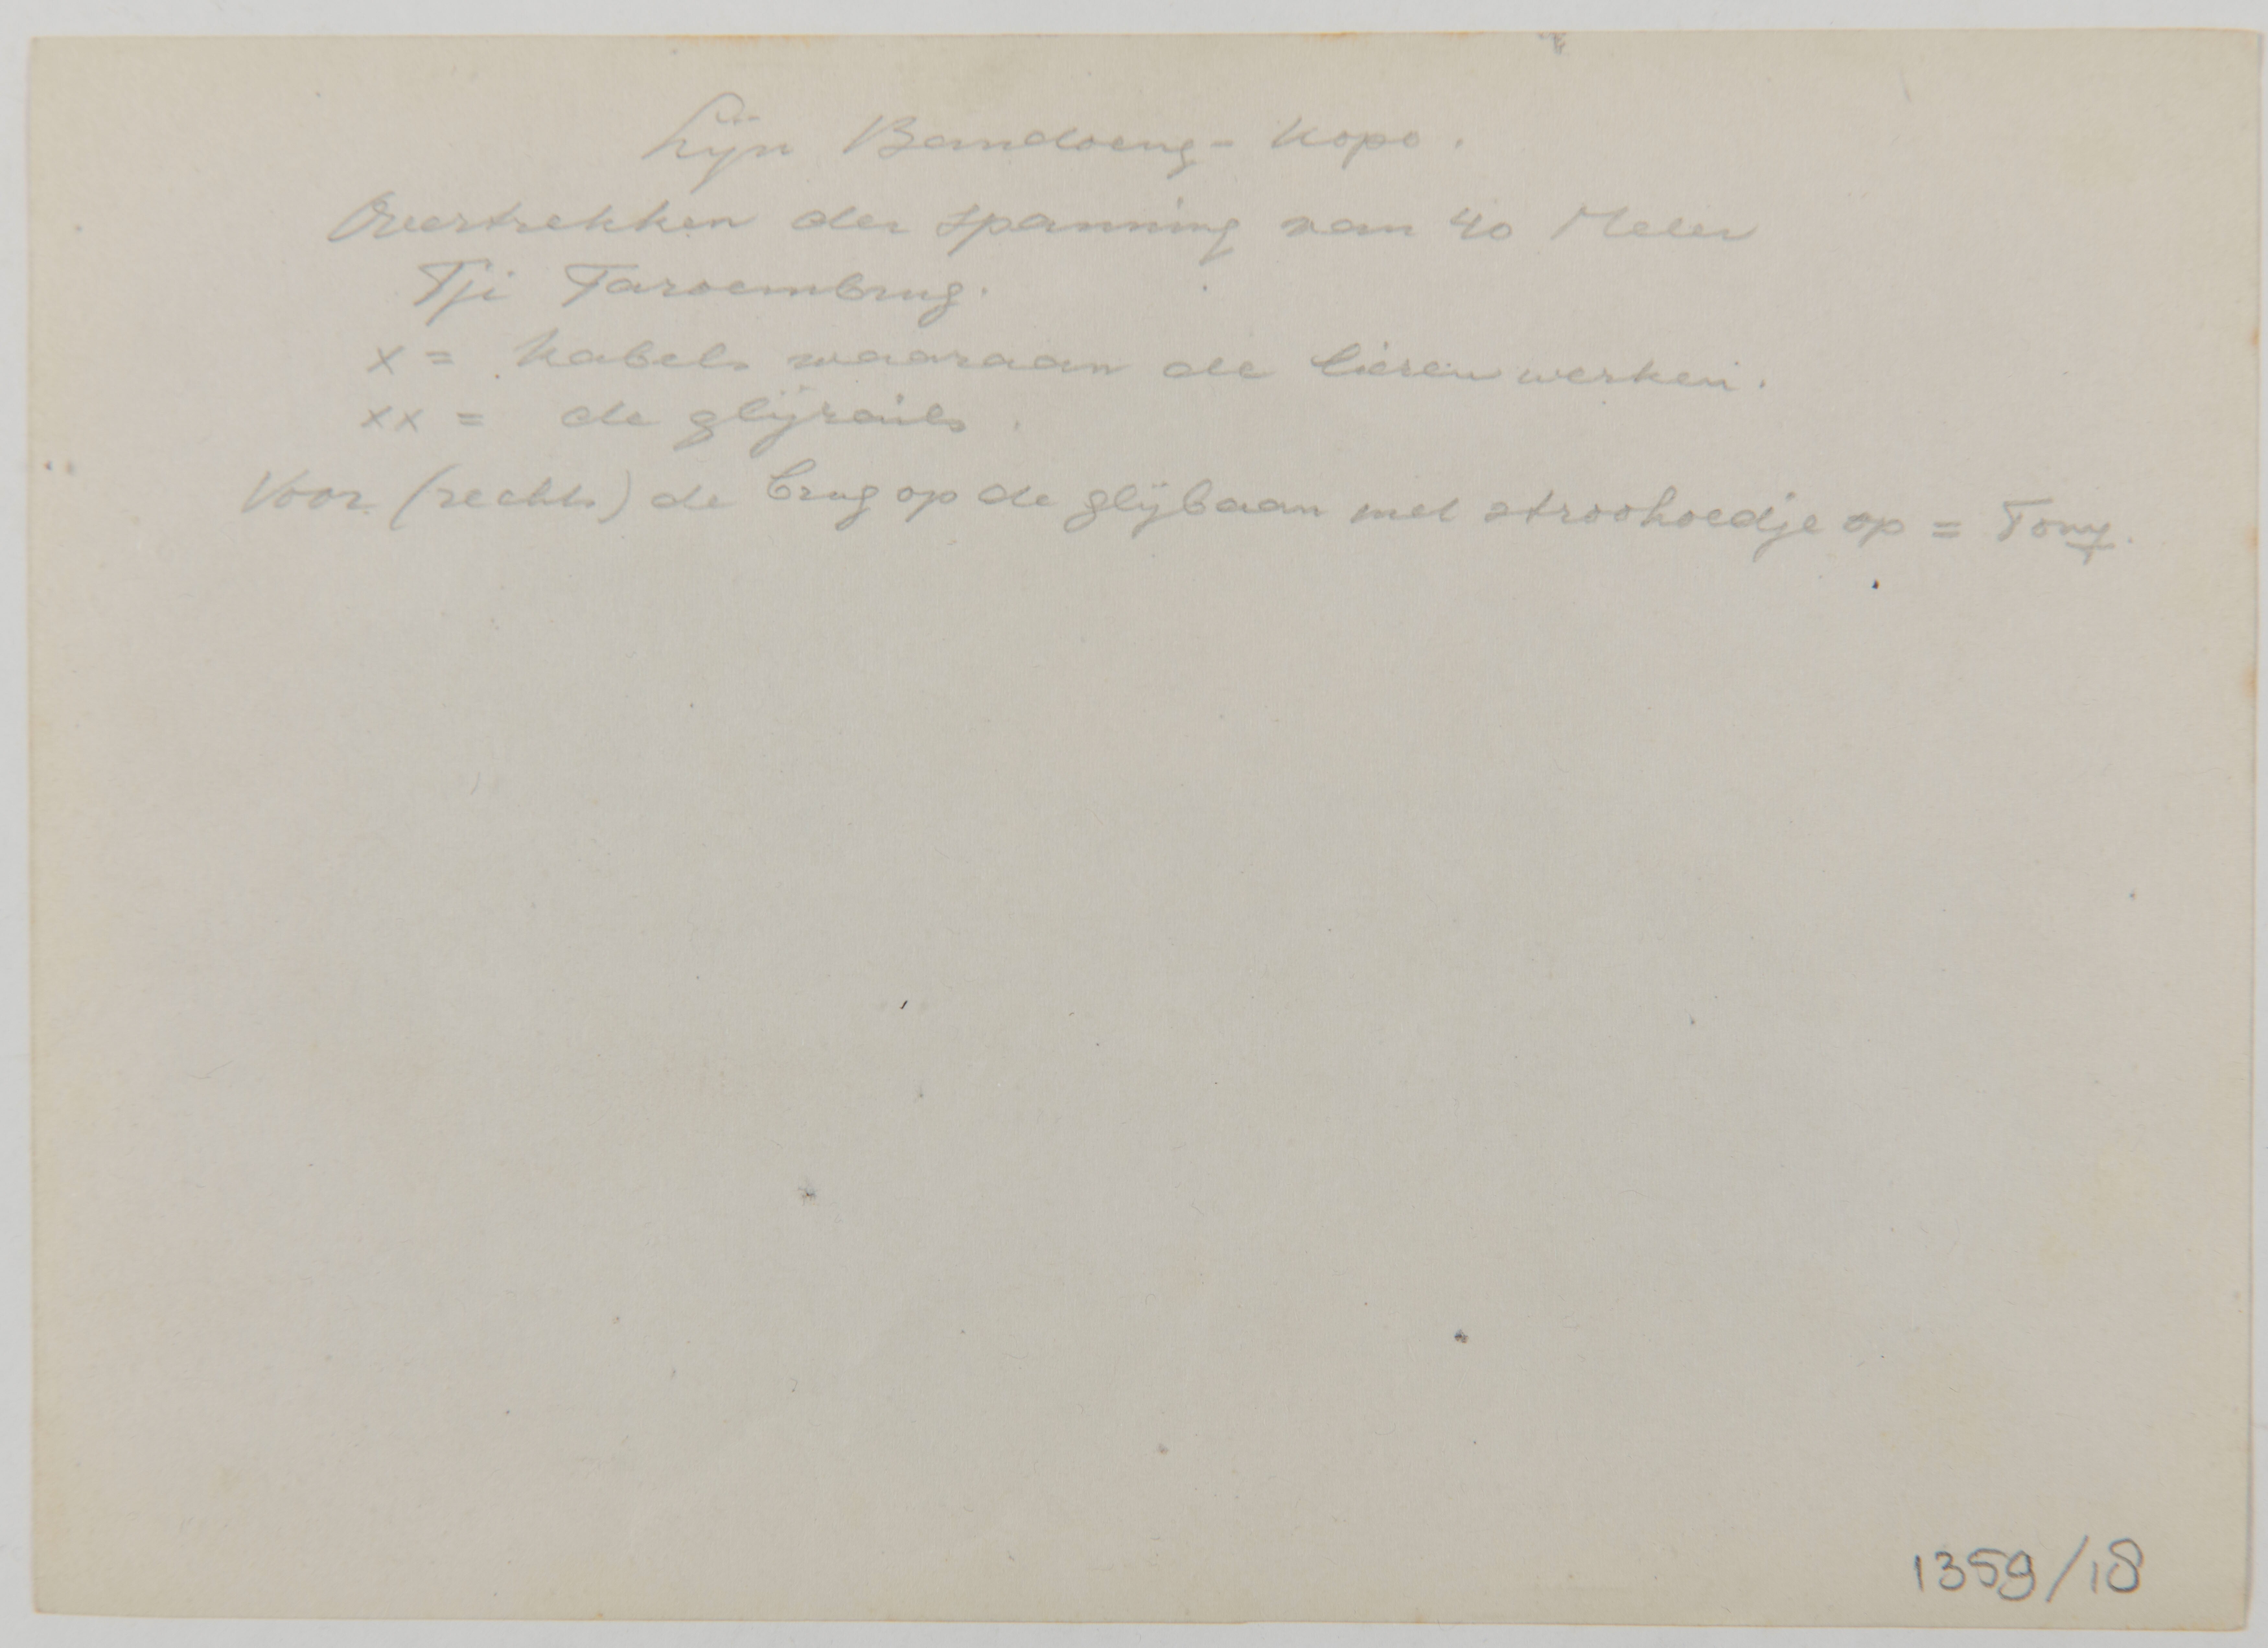 Lijn Bandoeng - Kopo.
Overtrekken der spanning van 40 Meter
Tji Taroembrug.
x = Kabels waaraan de lieren werken.
xx = de glijrails.
Voor (rechts) de brug op de glijbaan met stroohoedje op = Tony.
1359/18